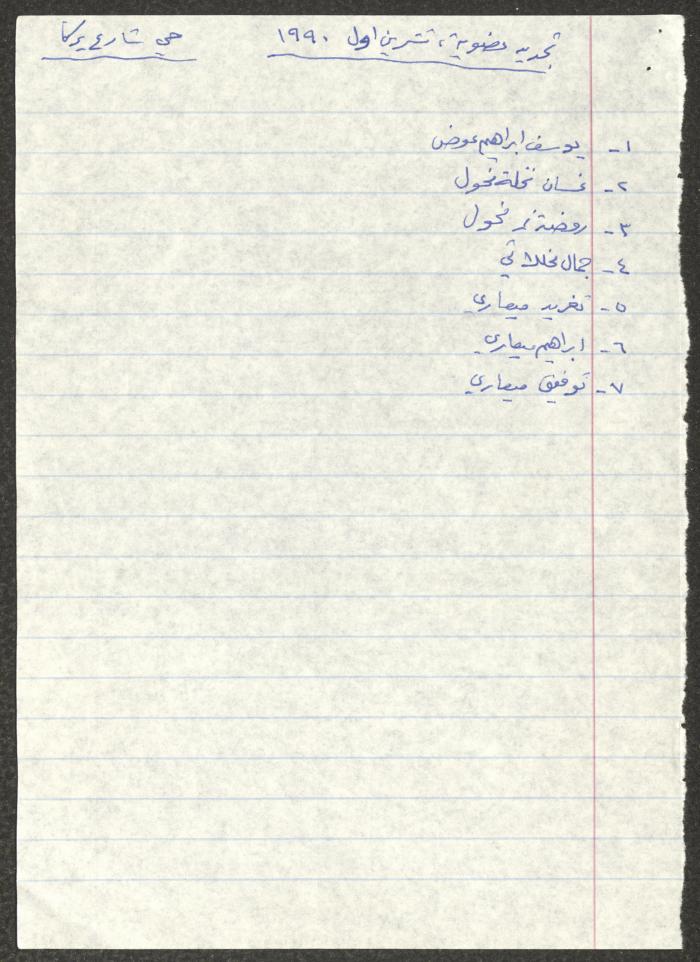 تجديد عضوية، تشرين اول ١٩٩٠ حي شارع يركا
١- يوسف ابراهيم عوض
٢- غسان نخلة نحول
٣- روضة نمر نحول
٤- جمال نحلاتي
٥- تغريد ميعاري
٦- ابراهيم ميعاري
٧- توفيق ميعاري